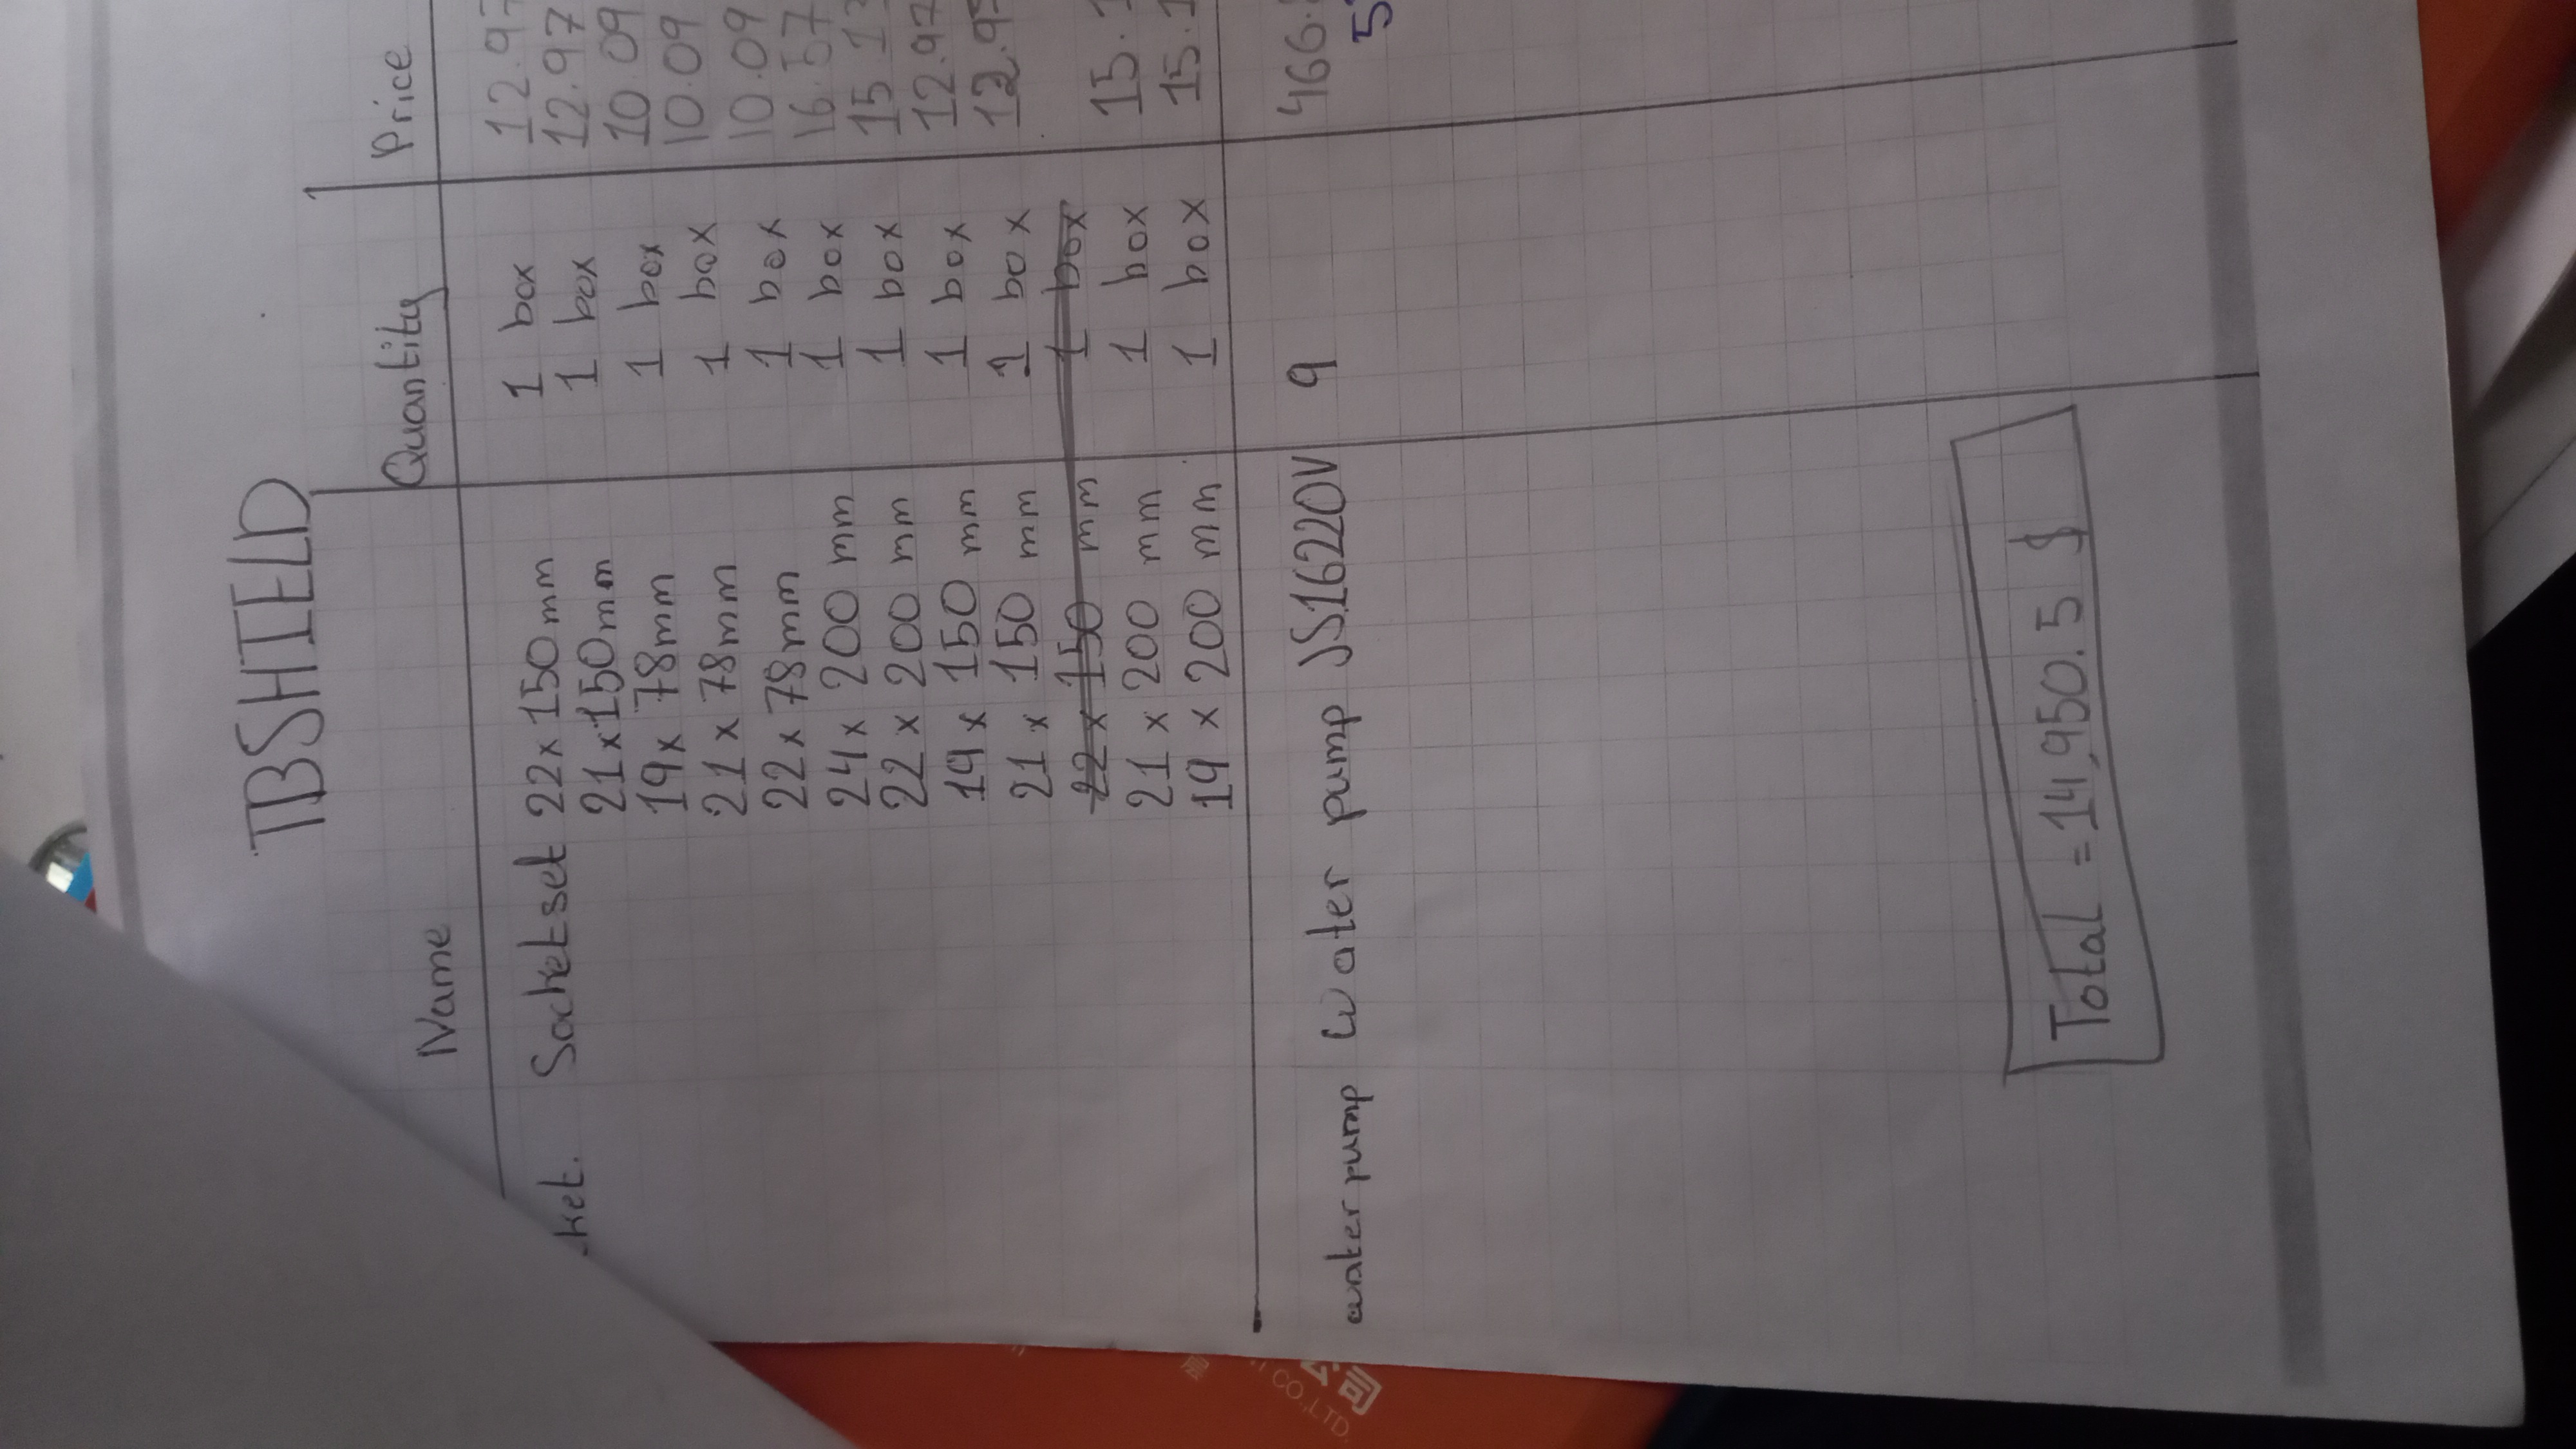 TBSHIELD
Name Quantity Price
Socketset 22x150mm 1 box
21x150mm 1 box 12.97
19x 78mm 1 box 10.09
21x 78mm 1 box 10.09
22x 78mm 1 box 10.09
24x 200 mm 1 box 16.57
22x 200 mm 1 box
19x 150 mm 1 box 12.97
21x 150 mm 1 box
22x 150 mm 1 box
21x 200 mm 1 box
19x 200 mm 1 box
waterpump Water pump JS16220V 9
Total = 14,950.5 $
公司
CO.,LTD.